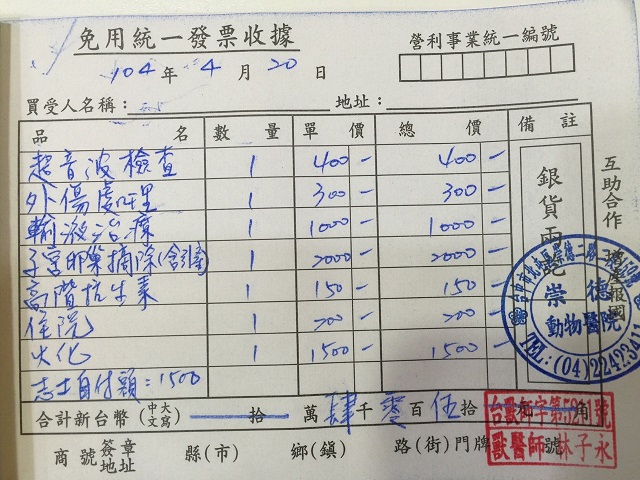 免用統一發票收據
營利事業統一編號
104年 4月 20日
買受人名稱： 地址：
品名 數量 單價 總價 備註
超音波檢查 1 400- 400-
外傷處理 1 300- 300-
輸液治療 1 1000- 1000-
子宮卵巢摘除(含引流) 1 2000- 2000-
高階抗生素 1 150- 150-
住院 1 200- 200-
火化 1 1500- 1500-
志士自付額：1500
合計新台幣(中文大寫) 拾 萬 肆 千 零 百 伍 拾 角
商號簽章地址 縣(市) 鄉(鎮) 路(街)門牌 號
銀貨兩訖
互助合作
報國
崇德
動物醫院
TEL:(04)224234
獸醫師 林子永